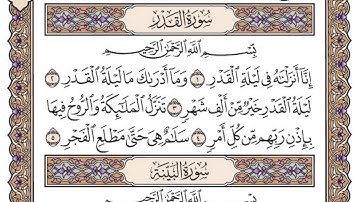 سُورَةُ القَدْرِ
بِسْمِ ٱللَّهِ ٱلرَّحْمَٰنِ ٱلرَّحِيمِ
إِنَّآ أَنزَلْنَٰهُ فِى لَيْلَةِ ٱلْقَدْرِ ١ وَمَآ أَدْرَىٰكَ مَا لَيْلَةُ ٱلْقَدْرِ ٢
لَيْلَةُ ٱلْقَدْرِ خَيْرٌ مِّنْ أَلْفِ شَهْرٍ ٣ تَنَزَّلُ ٱلْمَلَٰٓئِكَةُ وَٱلرُّوحُ فِيهَا
بِإِذْنِ رَبِّهِم مِّن كُلِّ أَمْرٍ ٤ سَلَٰمٌ هِىَ حَتَّىٰ مَطْلَعِ ٱلْفَجْرِ ٥
سُورَةُ البَيِّنَةِ
بِسْمِ ٱللَّهِ ٱلرَّحْمَٰنِ ٱلرَّحِيمِ